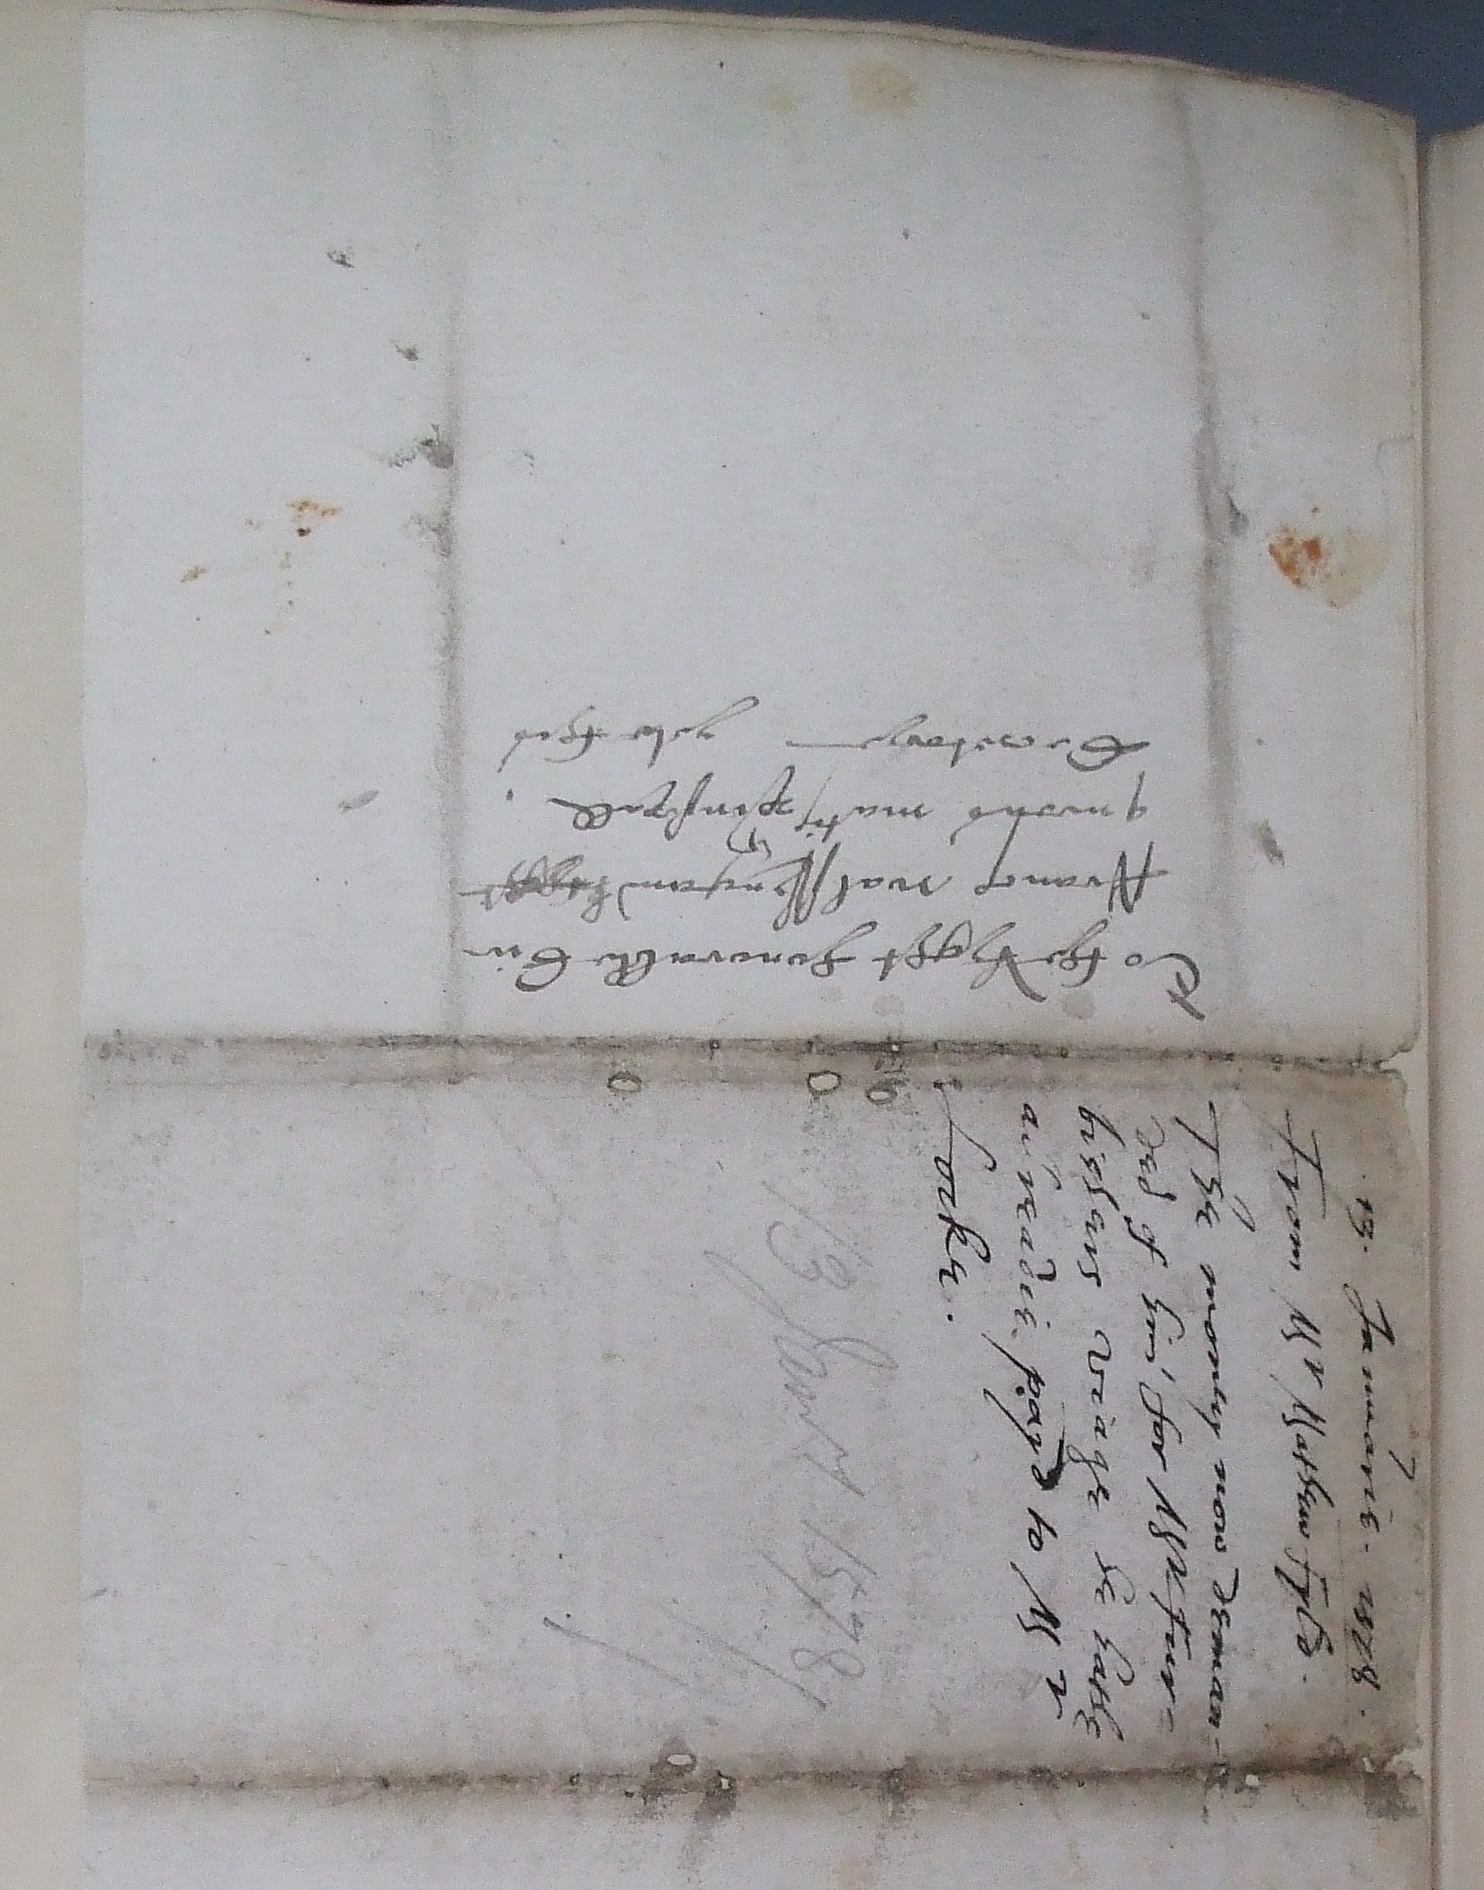 To the Ryght honorable Sir
Fraunces Walssyngam knyght
quens maiti prinsypall
Secretarye geve thes
.13. Januarie. 1578.
From Mr Mathew Fyld.
The money now deman-
ded of him for Mr Fur-
bishers viage he hathe
alreadie payd to Mr
Locke.
13 Jany 1578